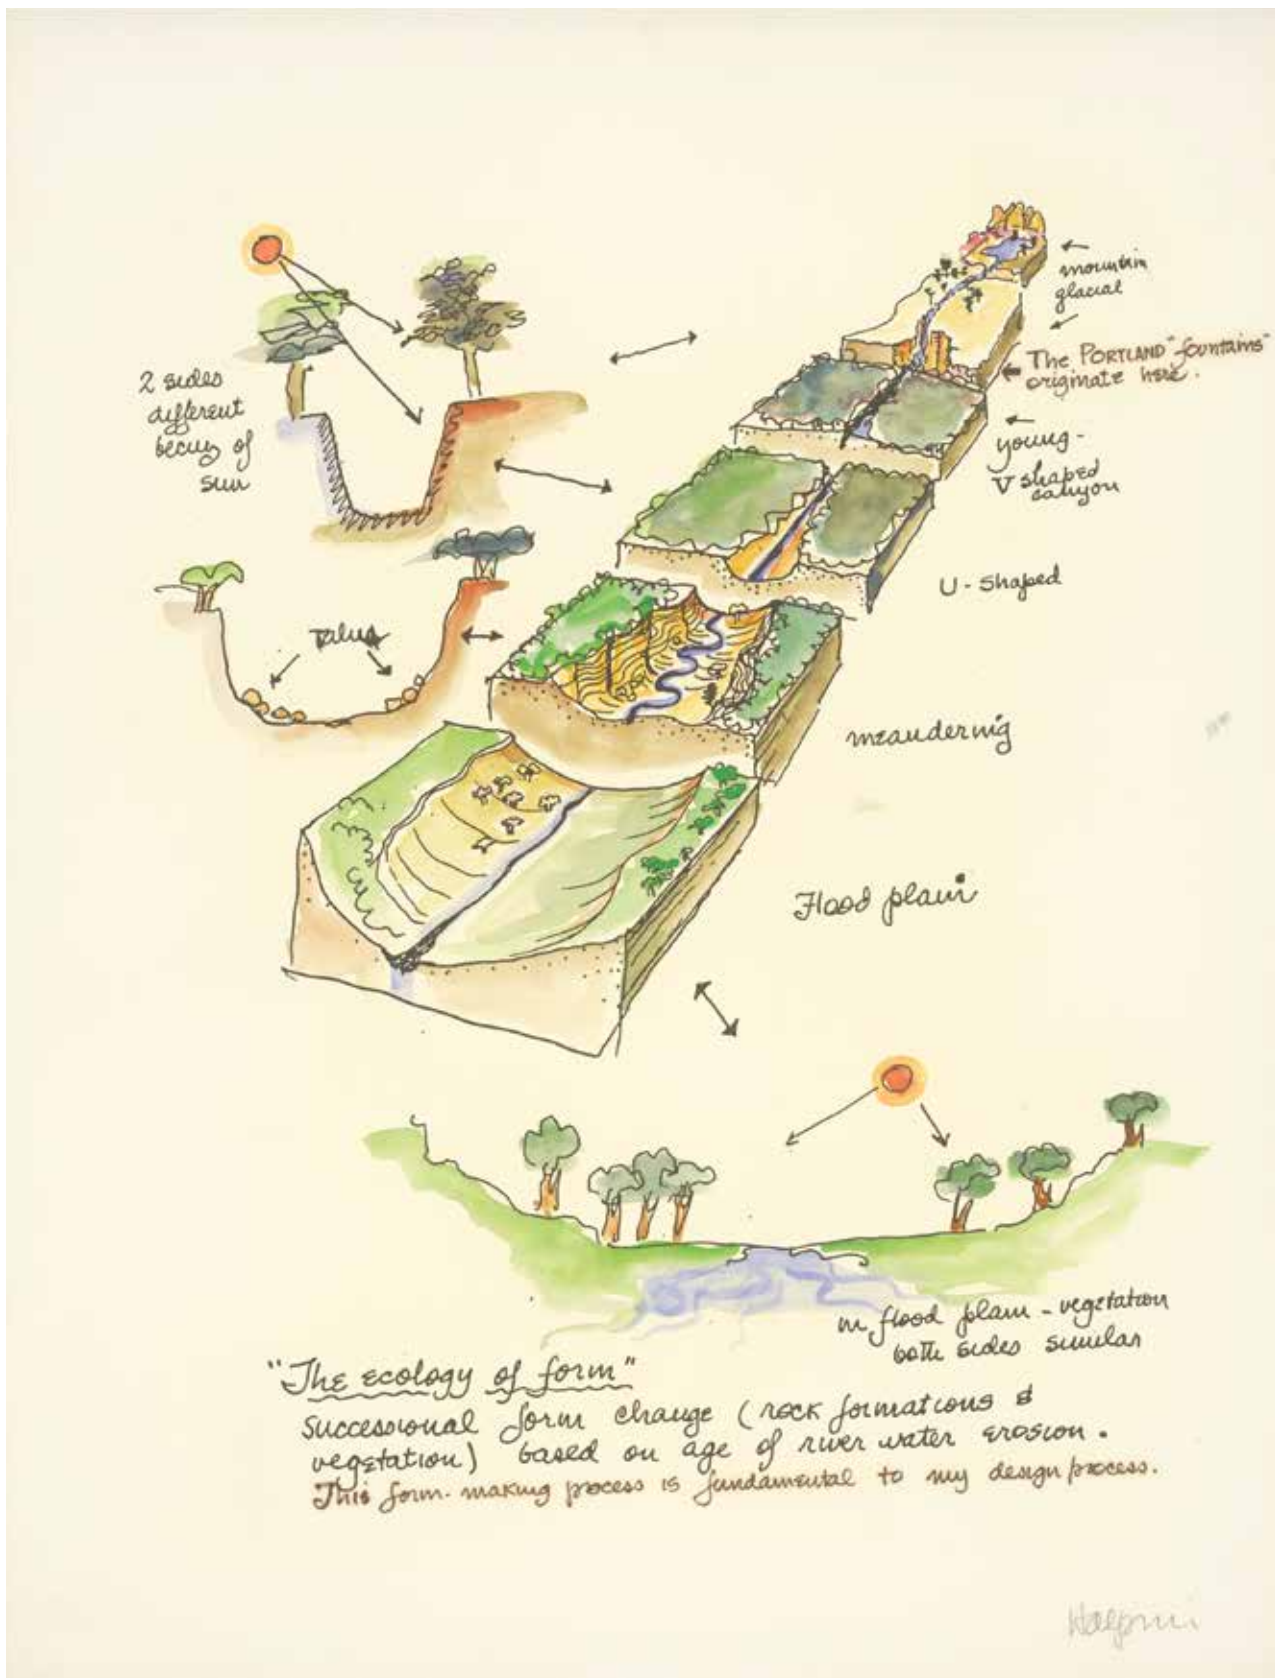 mountain
glacial
The PORTLAND "fountains"
originate here.
2 sides
different
becuz of
sun
young -
V shaped
canyon
U - shaped
Talus
meandering
Flood plain
in flood plain - vegetation
both sides similar
"The ecology of form"
successional form change (rock formations &
vegetation) based on age of river water erosion.
This form-making process is fundamental to my design process.
Halprin